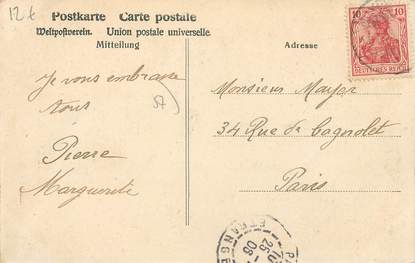 12 t
Postkarte Carte postale
Weltpostverein. Union postale universelle.
Mitteilung
Adresse
10 10
DEUTSCHES REICH
Je vous embrasse
tous
Pierre
Marguerite
Monsieur Mayor
34 Rue de Bagnolet
Paris
ETRANGER
25
08